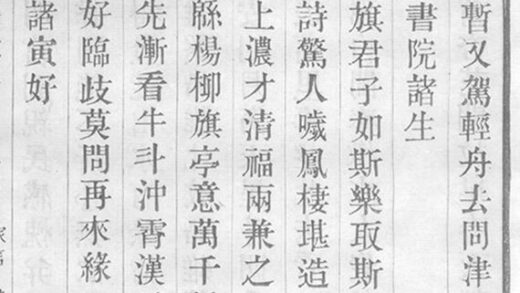 暫又駕輕舟去問津
書院諸生
旗君子如斯樂取斯
詩驚人噦鳳棲堪造
上濃才清福兩兼之
緜楊柳旗亭意萬千
先漸看牛斗沖霄漢
好臨歧莫問再來緣
諸寅好